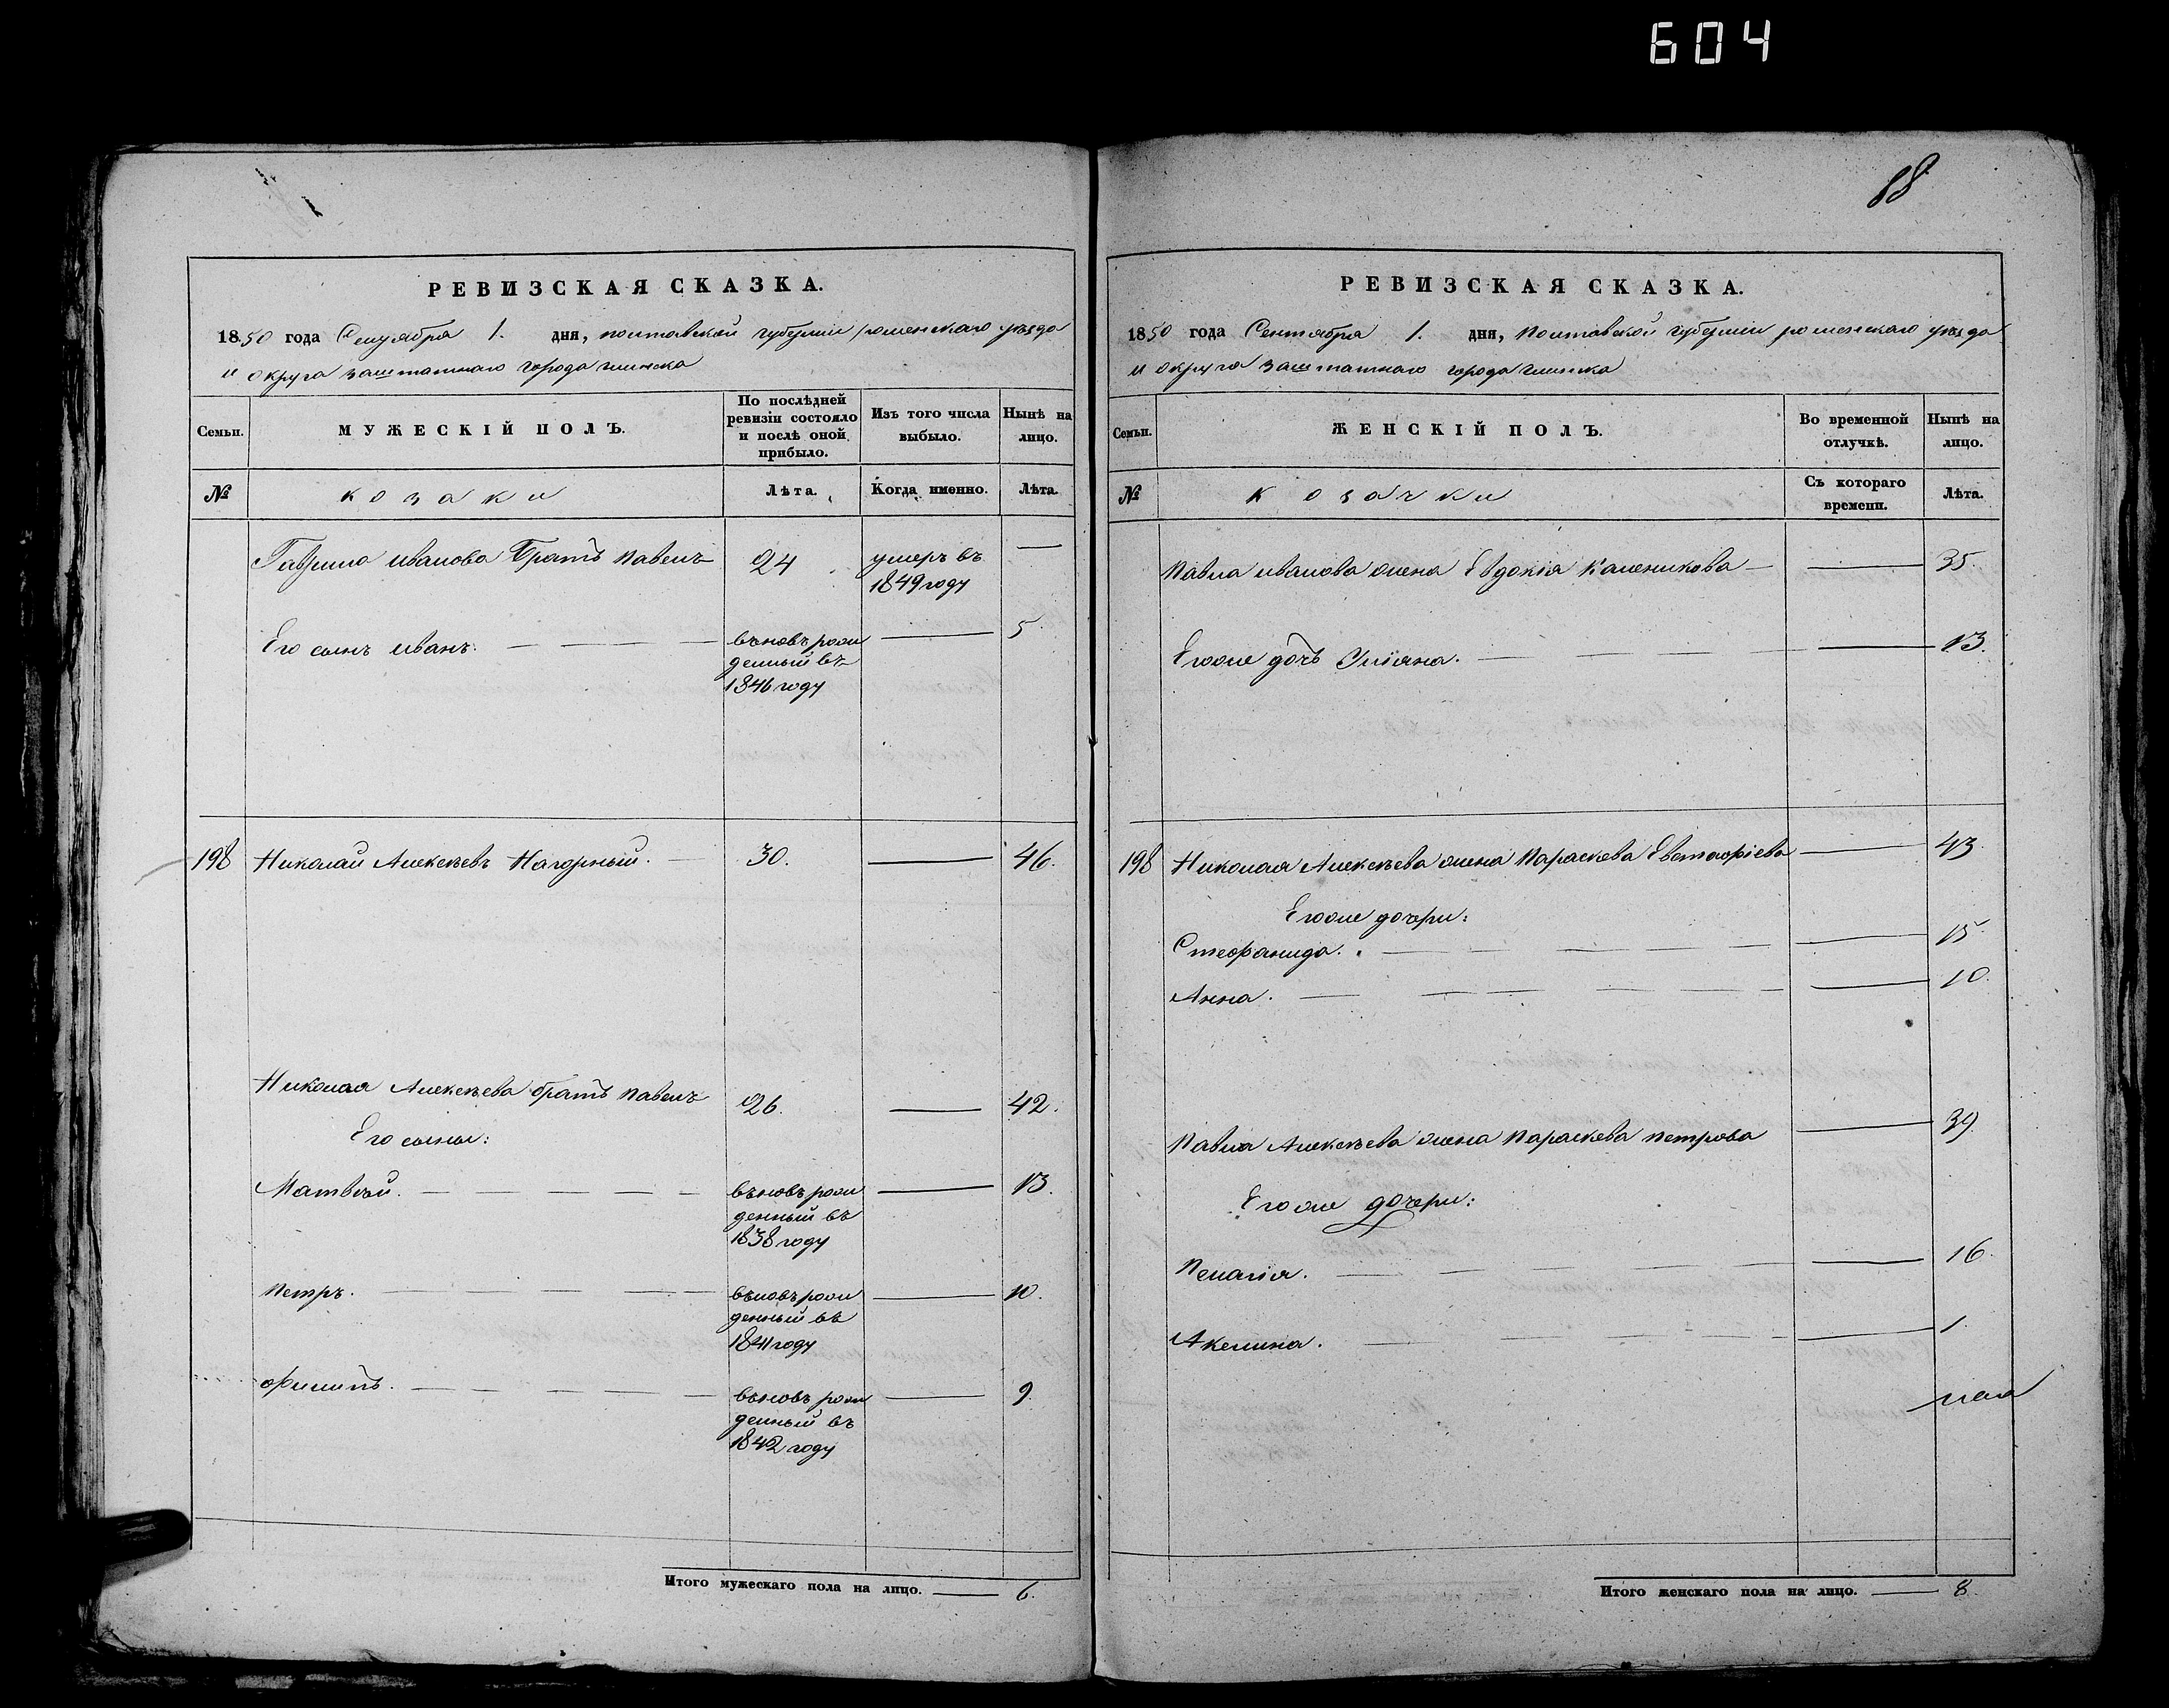 604
88
РЕВИЗСКАЯ СКАЗКА.
1850 года Сентября 1. дня, полтавской губернии роменскаго уѣзда
и округа заштатнаго города глинска
Семьи.
МУЖЕСКІЙ ПОЛЪ.
По послѣдней
ревизіи состояло
и послѣ оной
прибыло.
Изъ того числа
выбыло.
Нынѣ на
лицо.
№
козаки
Лѣта.
Когда именно.
Лѣта.
Гаврила иванова Братъ павелъ 24 умеръ въ —
1849 году
Его сынъ иванъ. въновь рож — 5
денный въ
1846 году
198 Николай Алексѣевъ Нагорный. 30. — 46.
Николая Алексѣева братъ павелъ 26. — 42.
Его сыны:
Матвѣй. въновь рож — 13.
денный въ
1838 году
петръ. въновь рож — 10.
денный въ
1841 году
филипъ. въновь рож — 9
денный въ
1842 году
Итого мужескаго пола на лицо. — 6.
РЕВИЗСКАЯ СКАЗКА.
1850 года Сентября 1. дня, полтавской губерніи роменскаго уѣзда
и округа заштатнаго города глинска
Семьи.
ЖЕНСКІЙ ПОЛЪ.
Во временной
отлучкѣ.
Нынѣ на
лицо.
№
козачки
Съ котораго
времени.
Лѣта.
павла иванова жена Евдокія Каленикова — 35.
Егоже дочь Уліяна. — 13.
198 Николая Алексѣева жена параскева Евстафіева — 43.
Егоже дочери:
Стефанида. — 15.
Анна. — 10.
павла Алексѣева жена параскева петрова — 39
Егоже дочери:
пелагія. — 16.
Акелина. — 1.
Итого женскаго пола на лицо. — 8.